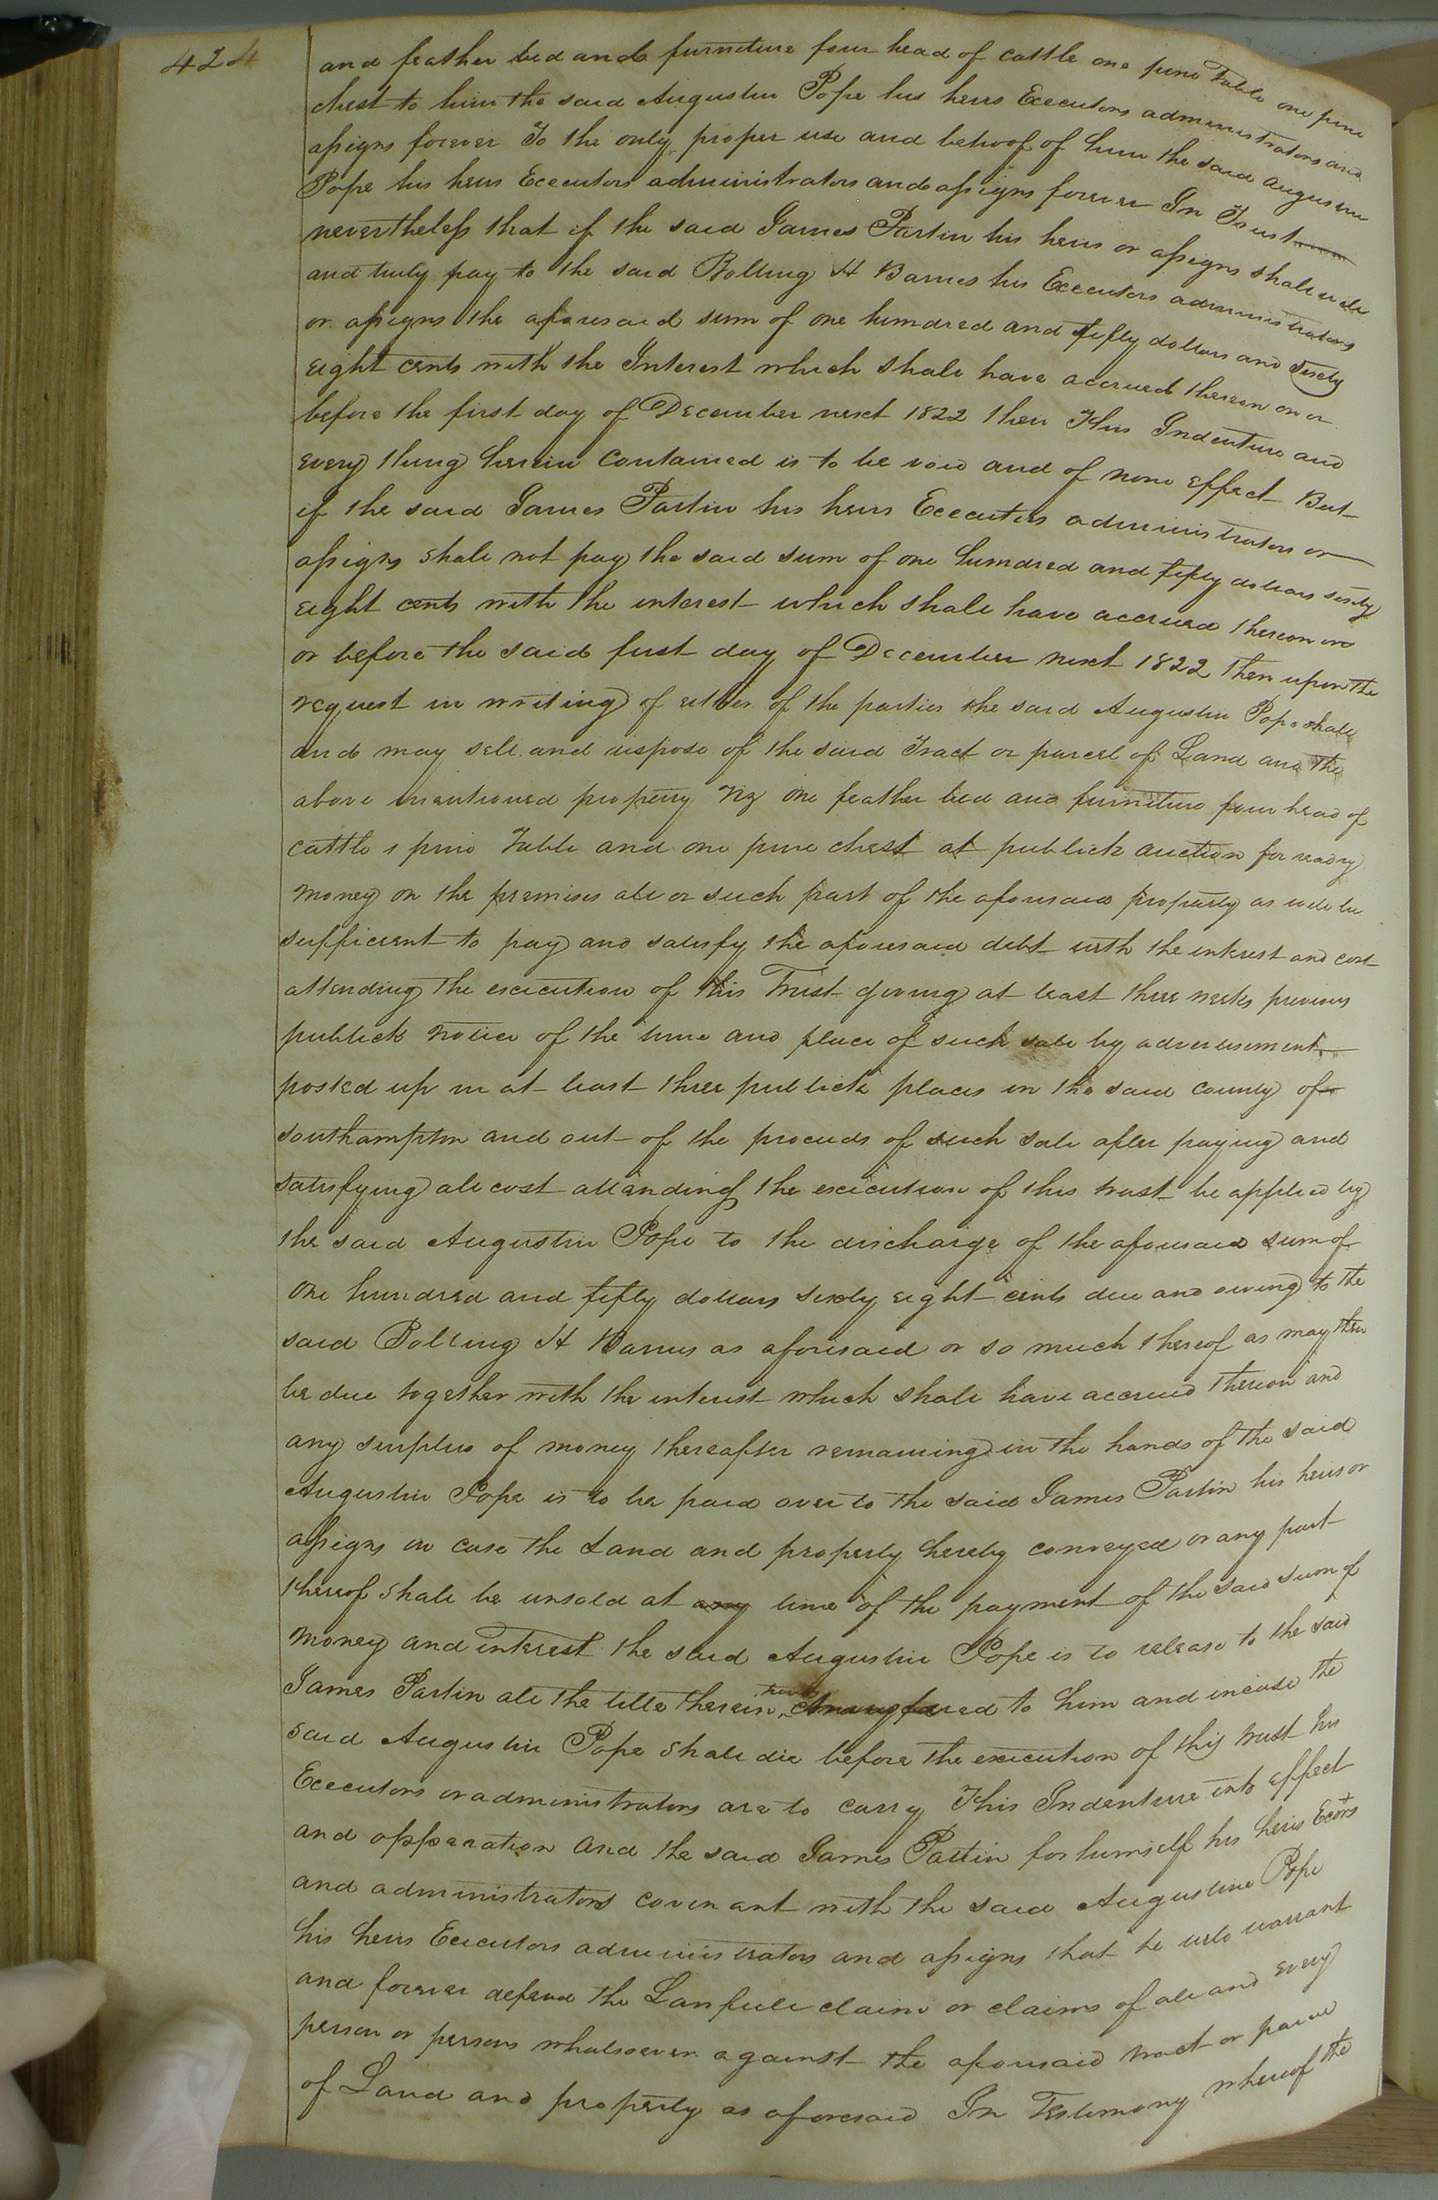 424
and feather bed and furniture four head of cattle one pine Table one pine
chest to him the said Augustin Pope his heirs Executors administrators and
assigns forever To the only proper use and behoof of him the said Augustin
Pope his heirs Executors administrators and assigns forever In Trust
nevertheless that if the said James Partin his heirs or assigns shall well
and truly pay to the said Bolling H Barnes his Executors administrators
or assigns the aforesaid sum of one hundred and fifty dollars and sixty
eight cents with the Interest which shall have accrued thereon on or
before the first day of December next 1822 then This Indenture and
every thing herein contained is to be void and of none effect But
if the said James Partin his heirs Executors administrators or
assigns shall not pay the said sum of one hundred and fifty dollars sixty
eight cents with the interest which shall have accrued thereon on
or before the said first day of December next 1822 then upon the
request in writing of either of the parties the said Augustin Pope shall
and may sell and dispose of the said Tract or parcel of Land and the
above mentioned property viz one feather bed and furniture four head of
cattle 1 pine Table and one pine chest at publick auction for ready
money on the premises all or such part of the aforesaid property as will be
sufficient to pay and satisfy the aforesaid debt with the interest and cost
attending the execution of this Trust giving at least three weeks previous
publick notice of the time and place of such sale by advertisement
posted up in at least three publick places in the said county of
southampton and out of the proceeds of such sale after paying and
satisfying all cost attending the execution of this trust be applied by
the said Augustin Pope to the discharge of the aforesaid sum of
one hundred and fifty dollars sixty eight cents due and owing to the
said Bolling H Barnes as aforesaid or so much thereof as may then
be due together with the interest which shall have accrued thereon and
any surplus of money thereafter remaining in the hands of the said
Augustin Pope is to be paid over to the said James Partin his heirs or
assigns in case the Land and property hereby conveyed or any part
thereof shall be unsold at any time of the payment of the said sum of
money and interest the said Augustin Pope is to release to the said
James Partin all the title therein to him and incase the
said Augustin Pope shall die before the execution of this trust his
Executors or administrators are to carry This Indenture into effect
and opperation and the said James Partin for himself his heirs Exors
and administrators covenant with the said Augustine Pope
his heirs Executors administrators and assigns that he will warrant
and forever defend the Lawfull claim or claims of all and every
person or persons whatsoever against the aforesaid tract or parcel
of Land and property as aforesaid In Testimony whereof the